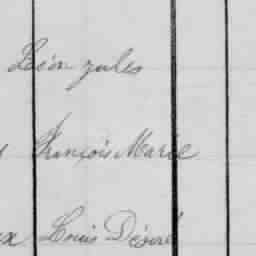 Léon Jules
François Marie
x Louis Désiré